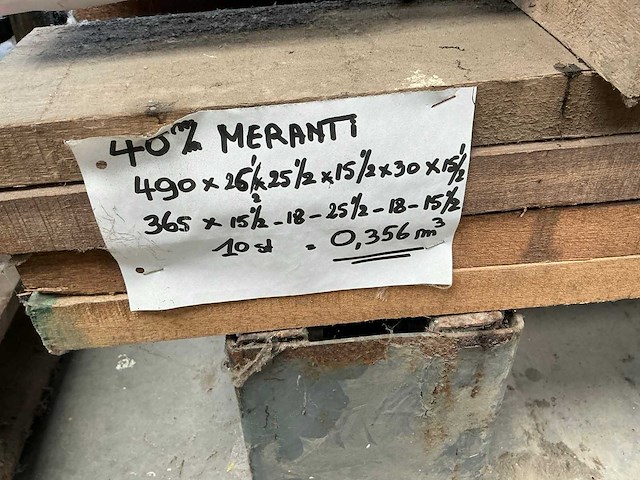 40 m/m MERANTI
490 x 26 1/2 x 25 1/2 x 15 1/2 x 30 x 15 1/2
365 x 15 1/2 - 18 - 25 1/2 - 18 - 15 1/2
10 st = 0,356 m³